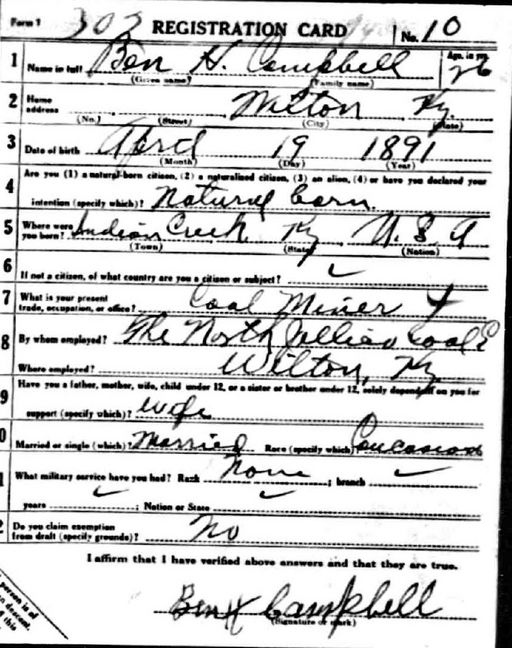 Form 1 303 REGISTRATION CARD No. 10
1 Name in full Ben H. Campbell Age, in yrs. 26
(Given name) (Family name)
2 Home address Wilton Ky.
(No.) (Street) (City) (State)
3 Date of birth April 19 1891
(Month) (Day) (Year)
Are you (1) a natural-born citizen, (2) a naturalized citizen, (3) an alien, (4) or have you declared your
4 intention (specify which)? Natural born
5 Where were you born? Indian Creek Ky U. S. A
(Town) (State) (Nation)
6 If not a citizen, of what country are you a citizen or subject? ✓
7 What is your present trade, occupation, or office? Coal Miner
8 By whom employed? The North Jellico Coal
Where employed? Wilton, Ky.
9 Have you a father, mother, wife, child under 12, or a sister or brother under 12, solely dependent on you for
support (specify which)? wife
0 Married or single (which)? Married Race (specify which) Caucasian
1 What military service have you had? Rank None ; branch ✓
years ✓ ; Nation or State ✓
2 Do you claim exemption from draft (specify grounds)? No
I affirm that I have verified above answers and that they are true.
Ben H Campbell
(Signature or mark)
person is of
n descent,
this